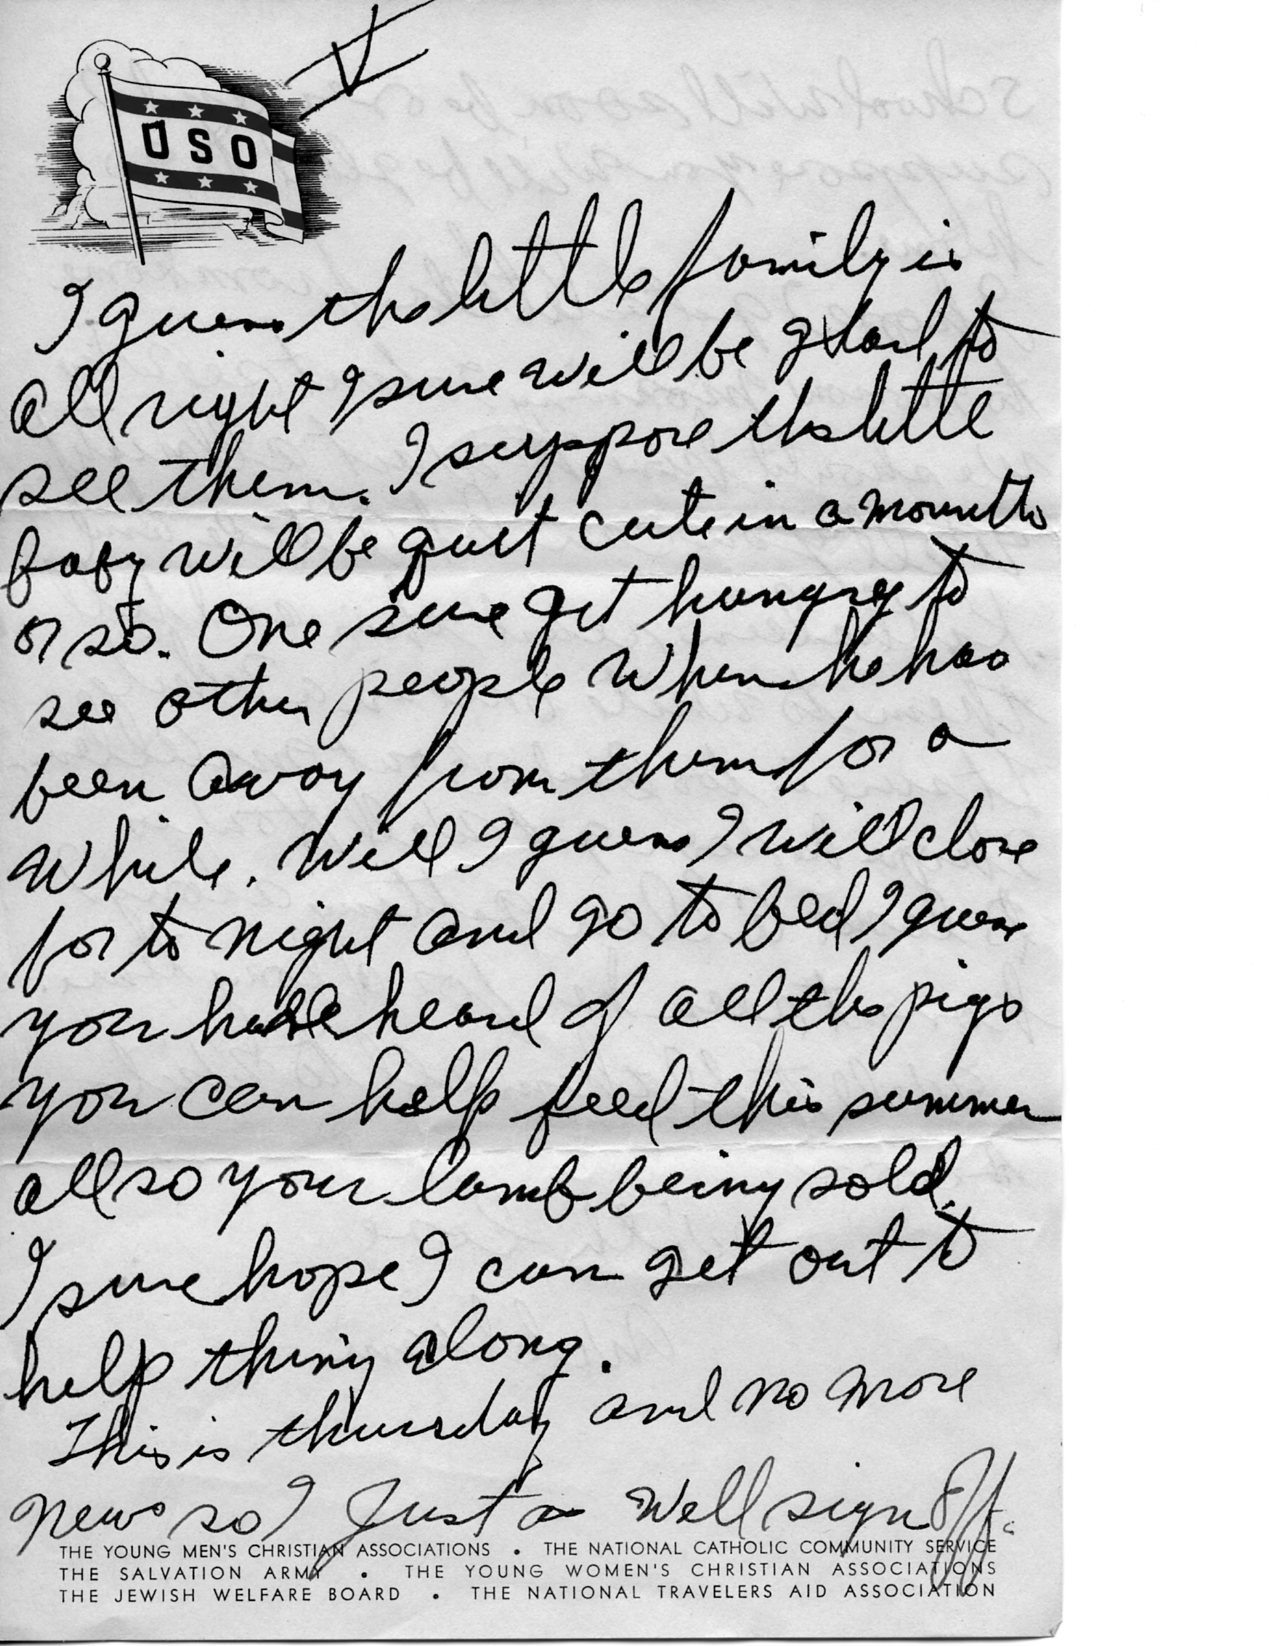 V
USO
I guess the little family is
all right I sure will be glad to
see them. I suppose the little
baby will be quit cute in a mounth
or so. One sure get hungrey to
see other people when he has
been away from them for a
while. Well I guess I will close
for to night and go to bed I guess
you have heard of all the pigs
you can help feed this summer
all so your lamb being sold.
I sure hope I can get out to
help thing along.
This is thursday and no more
news so I Just as well sign off.
THE YOUNG MEN'S CHRISTIAN ASSOCIATIONS • THE NATIONAL CATHOLIC COMMUNITY SERVICE
THE SALVATION ARMY • THE YOUNG WOMEN'S CHRISTIAN ASSOCIATIONS
THE JEWISH WELFARE BOARD • THE NATIONAL TRAVELERS AID ASSOCIATION